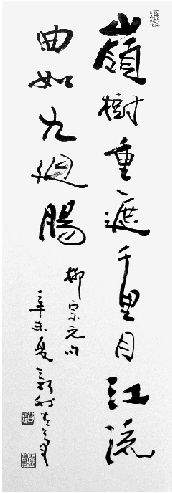 嶺樹重遮千里目江流
曲如九迴腸
柳宗元句
辛未夏